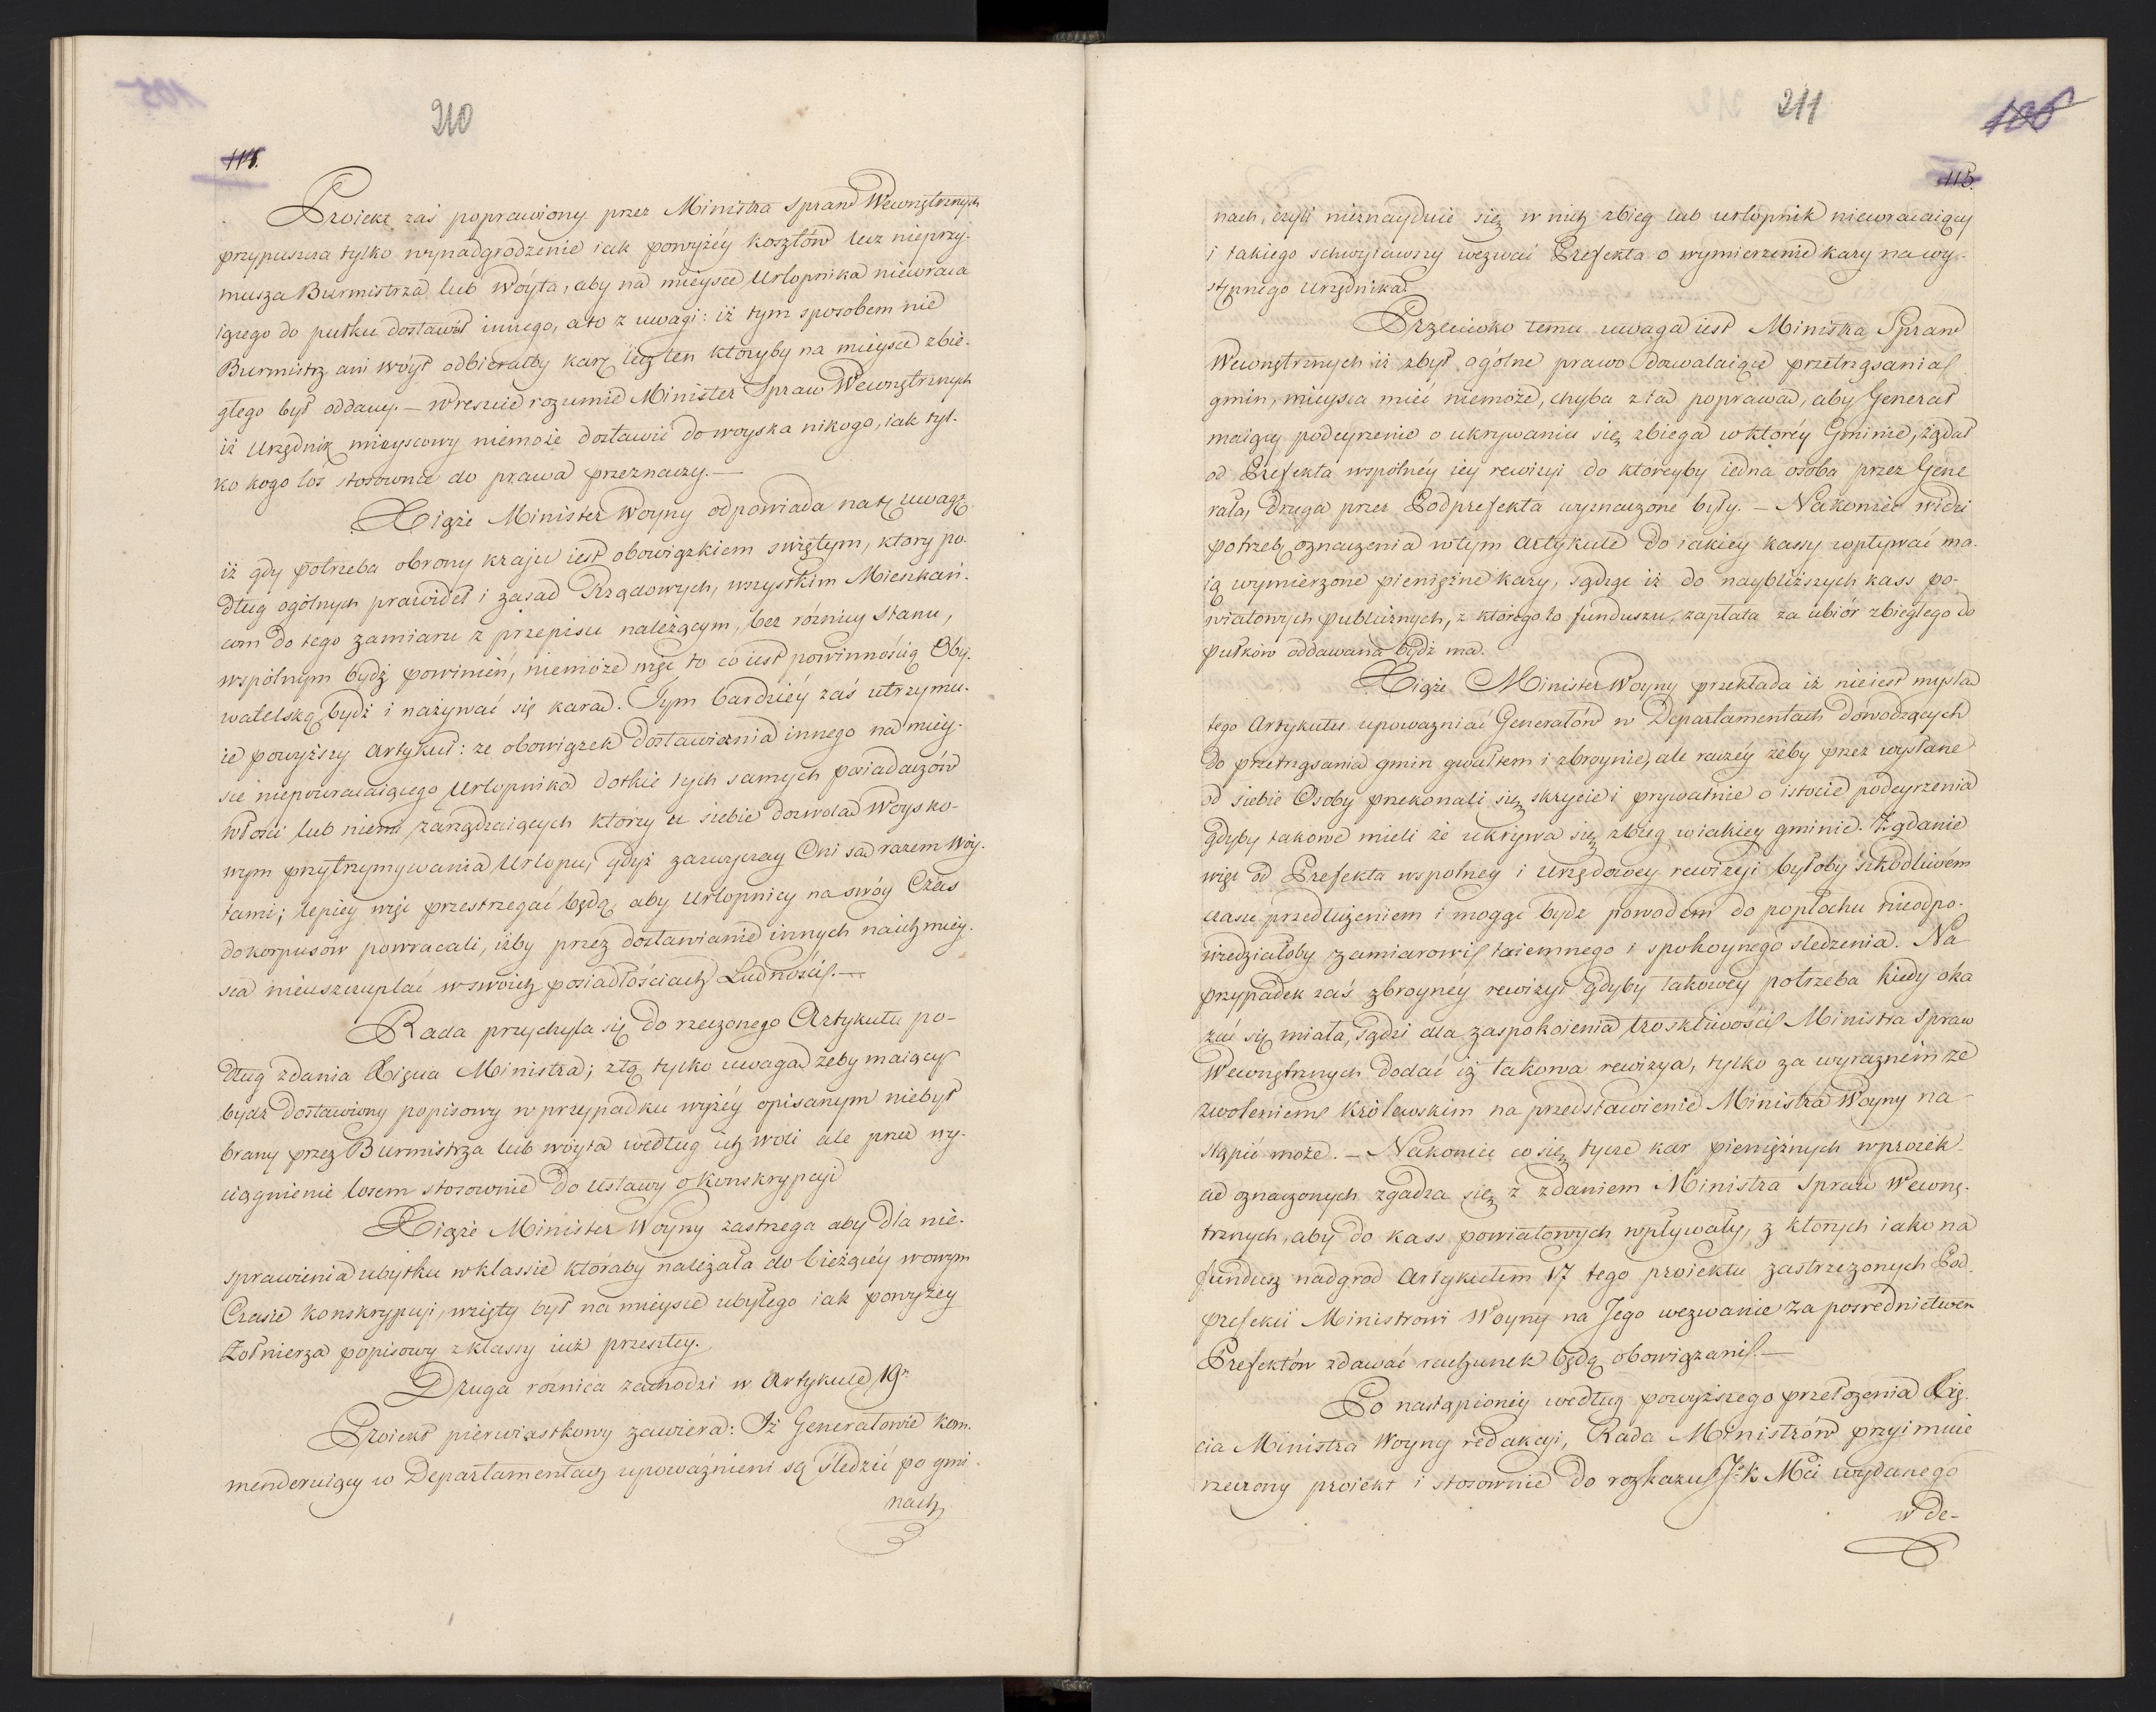 210
114.
Proiekt zaś poprawiony przez Ministra Spraw Wewnętrznych
przypuszcza tylko wynadgrodzenie iak powyżéy kosztów lecz nieprzy-
musza Burmistrza lub Wóyta, aby na mieysce Urlopnika niewraca
iącego do pułku dostawił innego, a to z uwagi: iż tym sposobem nie
Burmistrz ani wóyt odbierałby karę lecz ten któryby na mieysce zbie-
głego był oddany. – Wreszcie rozumie Minister Spraw Wewnętrznych
iż Urzędnik mieyscowy niemoże dostawić do woyska nikogo, iak tyl-
ko kogo los stosownie do prawa przeznaczy. –
Xiąże Minister Woyny odpowiada na tę uwagę
iż gdy potrzeba obrony kraju iest obowiązkiem świętym, ktory po-
dług ogólnych prawideł i zasad Rządowych, wszystkim Mieszkań-
com do tego zamiaru z przepisu należącym, bez różnicy stanu,
wspólnym bydź powinien, niemoże więc to co iest powinnością Oby-
watelską bydź i nazywać się karą. Tym bardziéy zaś utrzymu-
ie powyższy artykuł: ze obowiązek dostawienia innego na miey-
sce niepowracaiącego Urlopnika dotknie tych samych posiadaczów
włości lub niemi zarządzaiących którzy u siebie dozwolą Woysko-
wym przytrzymywania Urlopu, gdyż zazwyczay Oni są razem Wóy-
tami; lepiey więc przestrzegać będą, aby Urlopnicy na swóy Czas
do korpusow powracali, iżby przez dostawianie innych na ich miey-
sca nieuszczuplać w swoich posiadłościach Ludności. –
Rada przychyla się do rzeczonego Artykułu po-
dług zdania Xięcia Ministra; z tą tylko uwagą żeby maiący
bydź dostawiony popisowy w przypadku wyżéy opisanym niebył
brany przez Burmistrza lub wóyta według ich woli ale przez wy-
ciągnienie losem stosownie do Ustawy o Konskrypcyi
Xiąże Minister Woyny zastrzega aby dla nie-
sprawienia ubytku w klassie któraby należała do bieżącéy w owym
Czasie konskrypcyi, wzięty był na mieysce ubyłego iak powyżey
Żołnierza popisowy z klassy iuż przeszłey.
Druga roznica zachodzi w Artykule 19.
Proiekt pierwiastkowy zawiera: Iż Generałowie kom-
menderuiący w Departamentach upoważnieni są śledzić po gmi-
nach
211
106
115.
nach, czyli nieznayduie się w nich zbieg lub urlopnik niewracaiący
i takiego schwytawszy wezwać Prefekta o wymierzenie kary na wy-
stępnego Urzędnika.
Przeciwko temu uwaga iest Ministra Spraw
Wewnętrznych iż zbyt ogólne prawo dozwalaiące przetrząsania
gmin, mieysca mieć niemoże, chyba z tą poprawą, aby Generał
maiący podeyrzenie o ukrywaniu się zbiega w któréy Gminie, żądał
od Prefekta wspólnéy iey rewizyi do któreyby iedna osoba przez Gene
rała, druga przez Podprefekta wyznaczone były. – Nakoniec widzi
potrzebę oznaczenia w tym artykule do iakiey kassy wpływać ma-
ią wymierzone pieniężne kary, sądząc iż do naybliższych kass po-
wiatowych publicznych, z którego to funduszu, zapłata za ubiór zbiegłego do
pułków oddawana bydź ma.
Xiąże Minister Woyny przekłada iż nieiest myslą
tego Artykułu upowazniać Generałów w Departamentach dowodzących
do przetrząsania gmin gwałtem i zbroynie, ale raczéy żeby przez wysłane
od siebie Osoby przekonali się skrycie i prywatnie o istocie podeyrzenia
gdyby takowe mieli że ukrywa się zbieg w iakiey gminie. Żądanie
więc od Prefekta wspolney i Urzędowey rewizyi byłoby szkodliwém
czasu przedłużeniem i mogąc bydz powodem do popłochu nieodpo-
wiedziałoby zamiarowi taiemnego i spokoynego sledzenia. Na
przypadek zaś zbroynéy rewizyi gdyby takowéy potrzeba kiedy oka
zać się miała, sądzi dla zaspokoienia troskliwości Ministra Spraw
Wewnętrznych dodać iż takowa rewizya, tylko za wyraznem ze
zwoleniem Królewskim na przedstawienie Ministra Woyny na-
stąpić może. – Nakoniec co się tycze kar pieniężnych w proiek-
cie oznaczonych zgadza się z zdaniem Ministra Spraw Wewnę-
trznych, aby do kass powiatowych wpływały, z ktorych iako na
fundusz nadgrod Artykułem 17 tego proiektu zastrzezonych Pod-
prefekci Ministrowi Woyny na Jego wezwanie za posrednictwem
Prefektów zdawać rachunek będą obowiązani. –
Po nastąpioniey według powyższego przełozenia Xię-
cia Ministra Woyny redakcyi, Rada Ministrów przyimuie
rzeczony proiekt i stosownie do rozkazu J. K. Mci wydanego
w De-